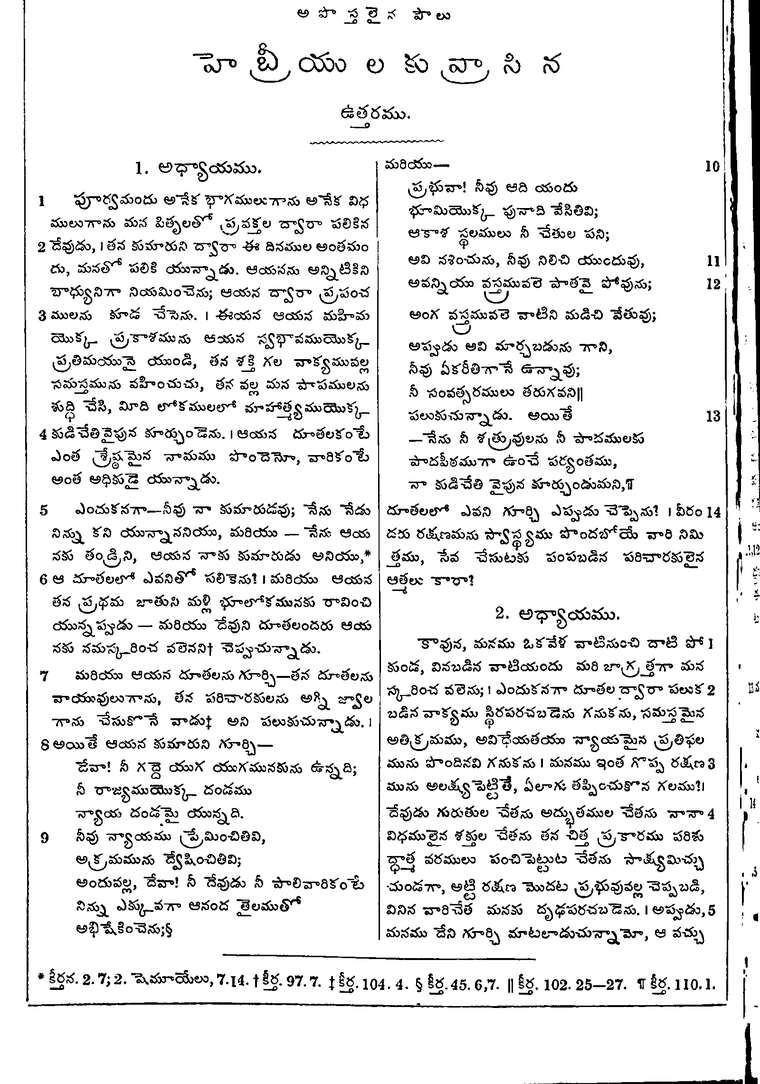 అపొస్తలైన పౌలు
హెబ్రీయులకు వ్రాసిన
ఉత్తరము.
1. అధ్యాయము.
1 పూర్వమందు అనేక భాగములుగాను అనేక విధ
ములుగాను మన పితృలతో ప్రవక్తల ద్వారా పలికిన
2 దేవుడు, । తన కుమారుని ద్వారా ఈ దినముల అంతమం
దు, మనతో పలికి యున్నాడు. ఆయనను అన్నిటికిని
బాధ్యునిగా నియమించెను; ఆయన ద్వారా ప్రపంచ
3 ములను కూడ చేసెను. । ఈయన ఆయన మహిమ
యొక్క ప్రకాశమును ఆయన స్వభావముయొక్క
ప్రతిమయునై యుండి, తన శక్తి గల వాక్యమువల్ల
సమస్తమును వహించుచు, తన వల్ల మన పాపములను
శుద్ధి చేసి, మీది లోకములలో మాహాత్మ్యముయొక్క
4 కుడిచేతివైపున కూర్చుండెను. । ఆయన దూతలకంటే
ఎంత శ్రేష్ఠమైన నామము పొందెనో, వారికంటే
అంత అధికుడై యున్నాడు.
5 ఎందుకనగా—నీవు నా కుమారుడవు; నేను నేడు
నిన్ను కని యున్నాననియు, మరియు — నేను ఆయ
నకు తండ్రిని, ఆయన నాకు కుమారుడు అనియు,*
6 ఆ దూతలలో ఎవనితో పలికెను? । మరియు ఆయన
తన ప్రథమ జాతుని మళ్లి భూలోకమునకు రావించి
యున్నప్పుడు — మరియు దేవుని దూతలందరు ఆయ
నకు నమస్కరించ వలెనని† చెప్పుచున్నాడు.
7 మరియు ఆయన దూతలనుగూర్చి—తన దూతలను
వాయువులుగాను, తన పరిచారకులను అగ్ని జ్వాల
గాను చేసుకొనే వాడు‡ అని పలుకుచున్నాడు. ।
8 అయితే ఆయన కుమారుని గూర్చి—
దేవా! నీ గద్దె యుగ యుగమునకును ఉన్నది;
నీ రాజ్యముయొక్క దండము
న్యాయ దండమై యున్నది.
9 నీవు న్యాయము ప్రేమించితివి,
అక్రమమును ద్వేషించితివి;
అందువల్ల, దేవా! నీ దేవుడు నీ పాలివారికంటే
నిన్ను ఎక్కువగా ఆనంద తైలముతో
అభిషేకించెను;§
మరియు— 10
ప్రభువా! నీవు ఆది యందు
భూమియొక్క పునాది వేసితివి;
ఆకాశ స్థలములు నీ చేతుల పని;
అవి నశించును, నీవు నిలిచి యుందువు, 11
అవన్నియు వస్త్రమువలె పాతవై పోవును; 12
అంగ వస్త్రమువలె వాటిని మడిచి వేతువు;
అప్పుడు అవి మార్చబడును గాని,
నీవు ఏకరీతిగానే ఉన్నావు;
నీ సంవత్సరములు తరుగవని‖
పలుకుచున్నాడు. అయితే 13
—నేను నీ శత్రువులను నీ పాదములకు
పాదపీఠముగా ఉంచే పర్యంతము,
నా కుడిచేతి వైపున కూర్చుండుమని,¶
దూతలలో ఎవని గూర్చి ఎప్పుడు చెప్పెను? । వీరం 14
దకు రక్షణమను స్వాస్థ్యము పొందబోయే వారి నిమి
త్తము, సేవ చేసుటకు పంపబడిన పరిచారకులైన
ఆత్మలు కారా?
2. అధ్యాయము.
కావున, మనము ఒకవేళ వాటినుంచి దాటి పో 1
కుండ, వినబడిన వాటియందు మరి జాగ్రత్తగా మన
స్కరించ వలెను; । ఎందుకనగా దూతల ద్వారా పలుక 2
బడిన వాక్యము స్థిరపరచబడెను గనుకను, సమస్తమైన
అతిక్రమము, అవిధేయతయు న్యాయమైన ప్రతిఫల
మును పొందినవి గనుకను । మనము ఇంత గొప్ప రక్షణ 3
మును అలక్ష్యపెట్టితే, ఏలాగు తప్పించుకొన గలము?।
దేవుడు గురుతుల చేతను అద్భుతముల చేతను నానా 4
విధములైన శక్తుల చేతను తన చిత్త ప్రకారము పరిశు
ద్ధాత్మ వరములు పంచిపెట్టుట చేతను సాక్ష్యమిచ్చు
చుండగా, అట్టి రక్షణ మొదట ప్రభువువల్ల చెప్పబడి,
వినిన వారిచేత మనకు దృఢపరచబడెను. । అప్పుడు, 5
మనము దేని గూర్చి మాటలాడుచున్నామో, ఆ వచ్చు
* కీర్తన. 2. 7; 2. షెమూయేలు, 7.14. † కీర్త. 97. 7. ‡ కీర్త. 104. 4. § కీర్త. 45. 6,7. ‖ కీర్త. 102. 25—27. ¶ కీర్త. 110. 1.